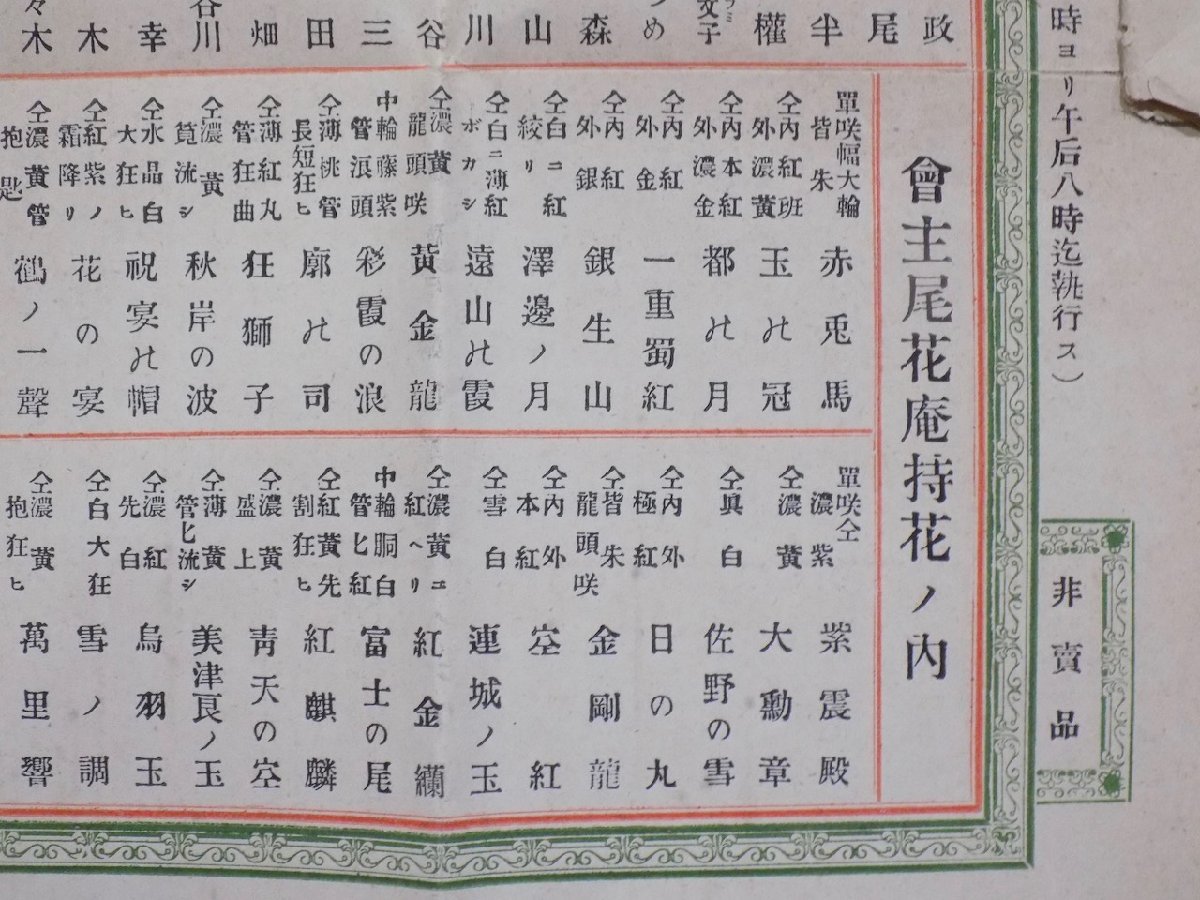 時ヨリ午后八時迄執行ス）
非賣品
政
尾
半
權
め
文子
森
山
川
谷
三
田
畑
谷川
幸
木
々木
會主尾花庵持花ノ內
單咲幅大輪皆朱 赤兎馬
仝內紅班外濃黄 玉の冠
仝內本紅外濃金 都の月
仝內紅外金 一重蜀紅
仝內紅外銀 銀生山
仝白ニ紅絞リ 澤邊ノ月
仝白ニ薄紅ボカシ 遠山の霞
仝濃黄龍頭咲 黄金龍
中輪藤紫管浪頭 彩霞の浪
仝薄桃管長短狂ヒ 廓の司
仝薄紅丸管狂曲 狂獅子
仝濃黄筧流シ 秋岸の波
仝水品白大狂ヒ 祝宴の帽
仝紅紫ノ霜降リ 花の宴
仝濃黄管抱匙 鶴ノ一聲
單咲仝濃紫 紫震殿
仝濃黄 大勳章
仝眞白 佐野の雪
仝內外極紅 日の丸
仝皆朱龍頭咲 金剛龍
仝內外本紅 空紅
仝雪白 連城ノ玉
仝濃黄ニ紅ヘリ 紅金襴
中輪胴白管匕紅 富士の尾
仝紅黄先割狂ヒ 紅麒麟
仝濃黄盛上 靑天の空
仝薄黄管匕流シ 美津良ノ玉
仝濃紅先白 烏羽玉
仝白大狂 雪ノ調
仝濃黄抱狂ヒ 萬里響